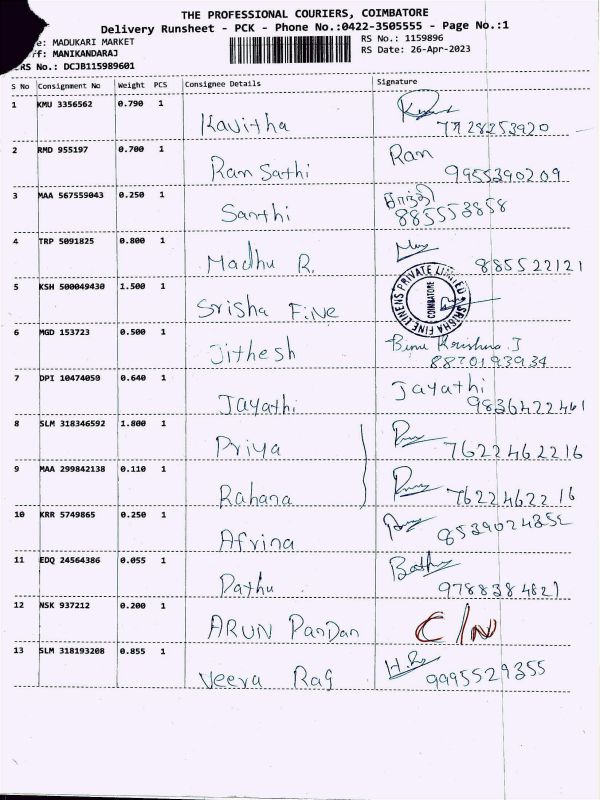 THE PROFESSIONAL COURIERS, COIMBATORE
Delivery Runsheet - PCK - Phone No.:0422-3505555 - Page No.:1
e: MADUKARI MARKET
RS No.: 1159896
ff: MANIKANDARAJ
RS Date: 26-Apr-2023
RS No.: DCJB115989601
S No Consignment No Weight PCS Consignee Details Signature
1 KMU 3356562 0.790 1
Kavitha
2 RMD 955197 0.700 1 Ram
Ram Sathi 9955390209
3 MAA 567559043 0.250 1 சாந்தி
Santhi 885553858
4 TRP 5091825 0.800 1
Madhu R. 885522121
5 KSH 500049430 1.500 1 SRISHA FINE LINENS PRIVATE LIMITED COIMBATORE
Srisha Fine
6 MGD 153723 0.500 1 Krishna J
Jithesh 8870193934
7 DPI 10474050 0.640 1 Jayathi
Jayathi 9836422461
8 SLM 318346592 1.800 1
Priya 7622462216
9 MAA 299842138 0.110 1
Rahana 7622462216
10 KRR 5749865 0.250 1
Afrina 8539024352
11 EDQ 24564386 0.055 1
Pathu 9788384821
12 NSK 937212 0.200 1 C/N
ARUN Pandan
13 SLM 318193208 0.855 1
Veera Rag 9995529355